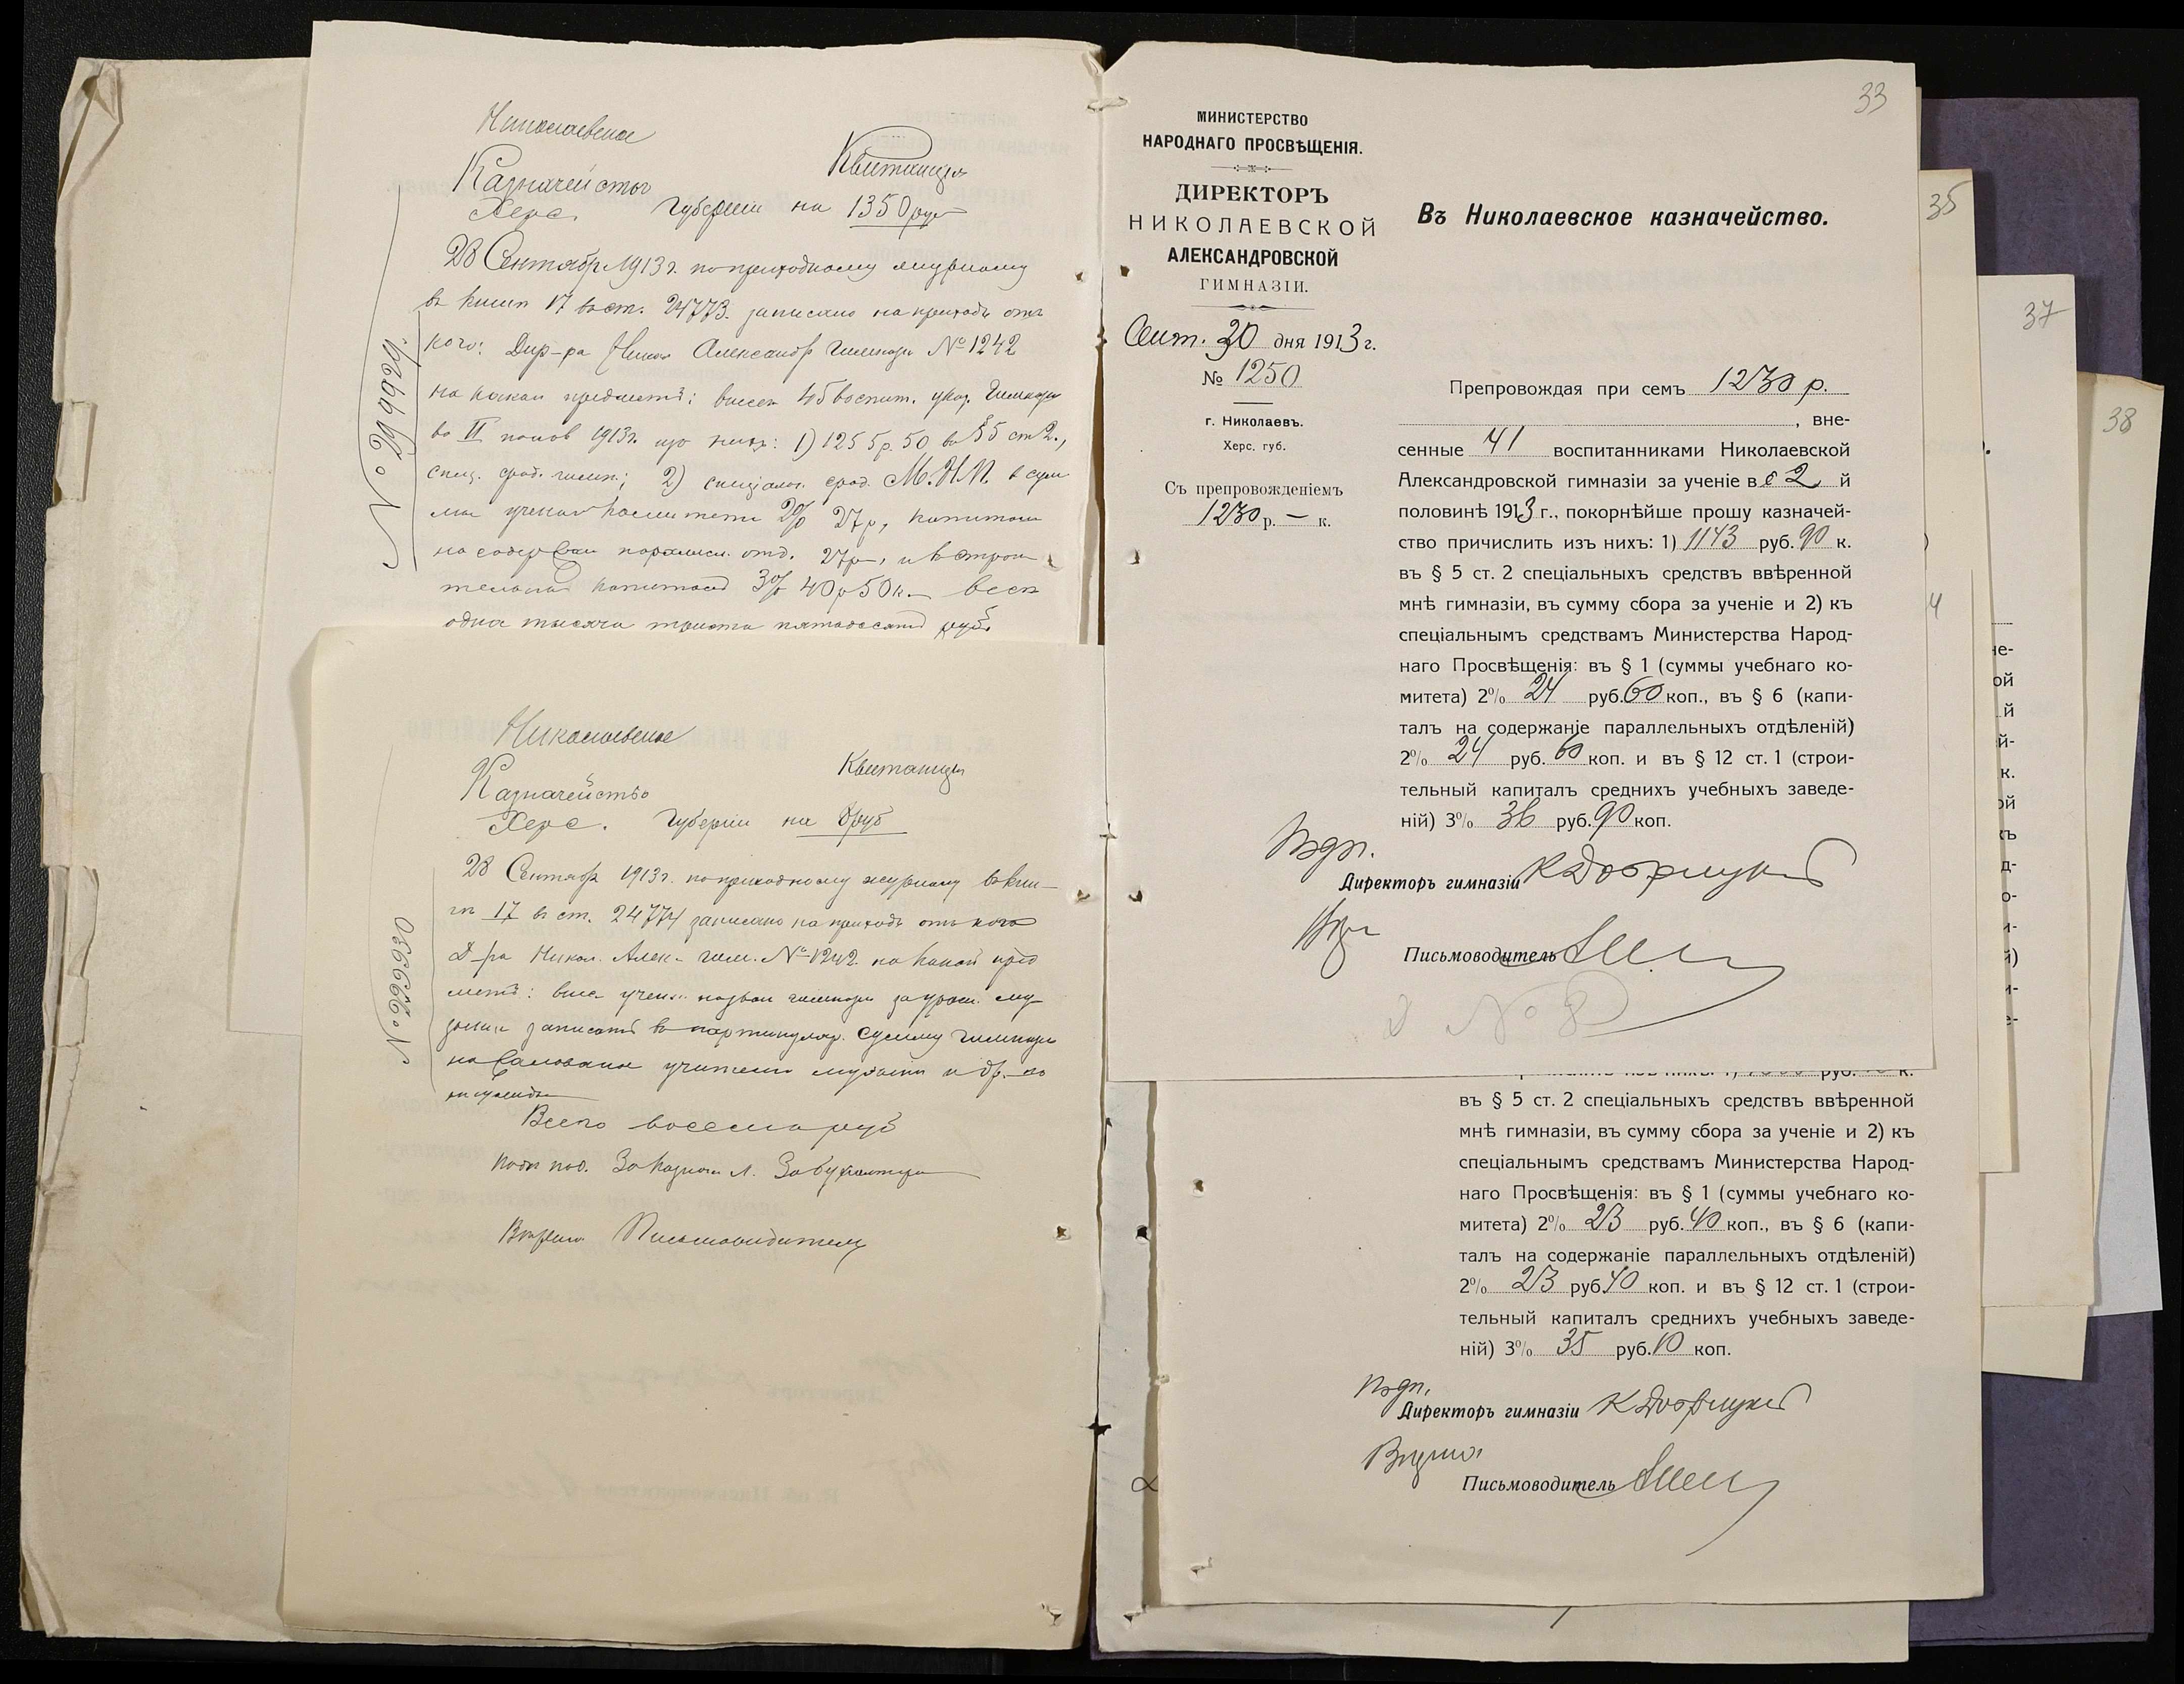 Николаевское
Казначейство
Квитанция
Херс. Губернии на 1350 руб
28 Сентября 1913 г. по приходному журналу
в книге 17 в ст. 24773 записано на приход от
кого: Дир-ра Никол Александр Гимназ № 1242
на какой предмет: внесен 45 воспит. указ. Гимназ
во II полов 1913 г. 1) 1255 р. 50 в § 5 ст 2.,
спец. сред. гимн.; 2) специальн. сред. М.Н.П. в сум
мы учен комитета 2% 27 р, капитал
на содержан параллел. отд. 27 р, и в строи
тельный капитал 3% 40 р 50 к. всего
одна тысяча триста пятьдесят руб.
№ 299929
Николаевское
Казначейство
Квитанция
Херс. Губернии на 8 руб
28 Сентября 1913 г. по приходному журналу в кни-
ге 17 в ст. 24774 записано на приход от кого
Д-ра Никол. Алек. гим. № 1242 на какой пред
мет: учен. гимназии за урок. му-
зыки записать в партикуляр. сумму гимназии
на жалование учителю музыки и др.
Всего восемь руб
Письмоводитель
№ 299930
33
МИНИСТЕРСТВО
НАРОДНАГО ПРОСВѢЩЕНІЯ.
ДИРЕКТОРЪ
НИКОЛАЕВСКОЙ
АЛЕКСАНДРОВСКОЙ
ГИМНАЗІИ.
Сент. 30 дня 1913 г.
№ 1250
г. Николаевъ.
Херс. губ.
Съ препровожденіемъ
1230 р. — к.
Въ Николаевское казначейство.
Препровождая при семъ 1230 р.
, вне-
сенные 41 воспитанниками Николаевской
Александровской гимназіи за ученіе в 2 й
половинѣ 1913 г., покорнѣйше прошу казначей-
ство причислить изъ нихъ: 1) 1143 руб. 90 к.
въ § 5 ст. 2 спеціальныхъ средствъ ввѣренной
мнѣ гимназіи, въ сумму сбора за ученіе и 2) къ
спеціальнымъ средствамъ Министерства Народ-
наго Просвѣщенія: въ § 1 (суммы учебнаго ко-
митета) 2% 24 руб. 60 коп., въ § 6 (капи-
талъ на содержаніе параллельныхъ отдѣленій)
2% 24 руб. 60 коп. и въ § 12 ст. 1 (строи-
тельный капиталъ среднихъ учебныхъ заведе-
ній) 3% 36 руб. 90 коп.
Подп.
Директоръ гимназіи
Письмоводитель
№ 8
въ § 5 ст. 2 спеціальныхъ средствъ ввѣренной
мнѣ гимназіи, въ сумму сбора за ученіе и 2) къ
спеціальнымъ средствамъ Министерства Народ-
наго Просвѣщенія: въ § 1 (суммы учебнаго ко-
митета) 2% 23 руб. 40 коп., въ § 6 (капи-
талъ на содержаніе параллельныхъ отдѣленій)
2% 23 руб. 40 коп. и въ § 12 ст. 1 (строи-
тельный капиталъ среднихъ учебныхъ заведе-
ній) 3% 35 руб. 10 коп.
Подп.
Директоръ гимназіи
Письмоводитель
35
37
38